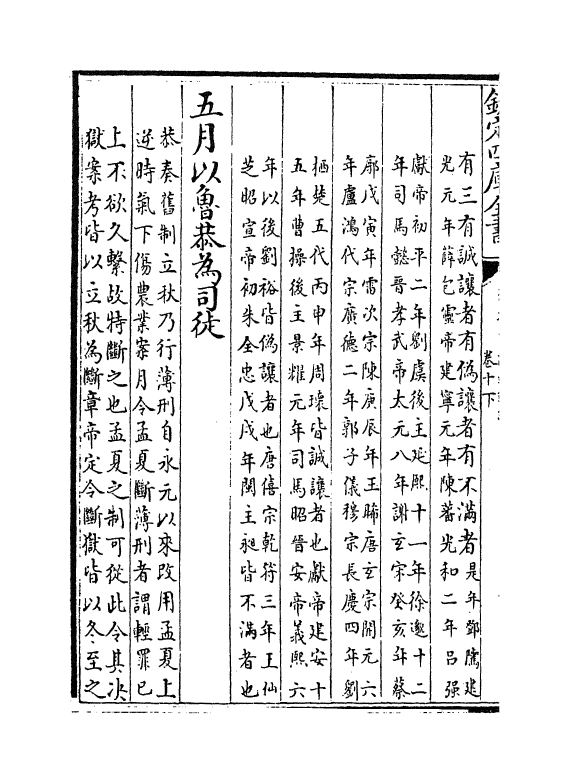 欽定四庫全書
卷十下
有三有誠讓者有偽讓者有不滿者是年鄧隲建
光元年薛包靈帝建寧元年陳蕃光和二年呂强
獻帝初平二年劉虞後主延熙十一年徐邈十二
年司馬懿晉孝武帝太元八年謝玄宋癸亥年蔡
廓戊寅年雷次宗陳庚辰年王晞唐玄宗開元六
年盧鴻代宗廣德二年郭子儀穆宗長慶四年劉
栖楚五代丙申年周瓌皆誠讓者也獻帝建安十
五年曹操後主景耀元年司馬昭晉安帝義熙六
年以後劉裕皆偽讓者也唐僖宗乾符三年王仙
芝昭宣帝初朱全忠戊戌年閩主昶皆不滿者也
五月以魯恭為司徒
恭奏舊制立秋乃行薄刑自永元以來改用孟夏上
逆時氣下傷農業案月令孟夏斷薄刑者謂輕罪已
上不欲久繫故特斷之也孟夏之制可從此令其决
獄案考皆以立秋為斷章帝定令斷獄皆以冬至之